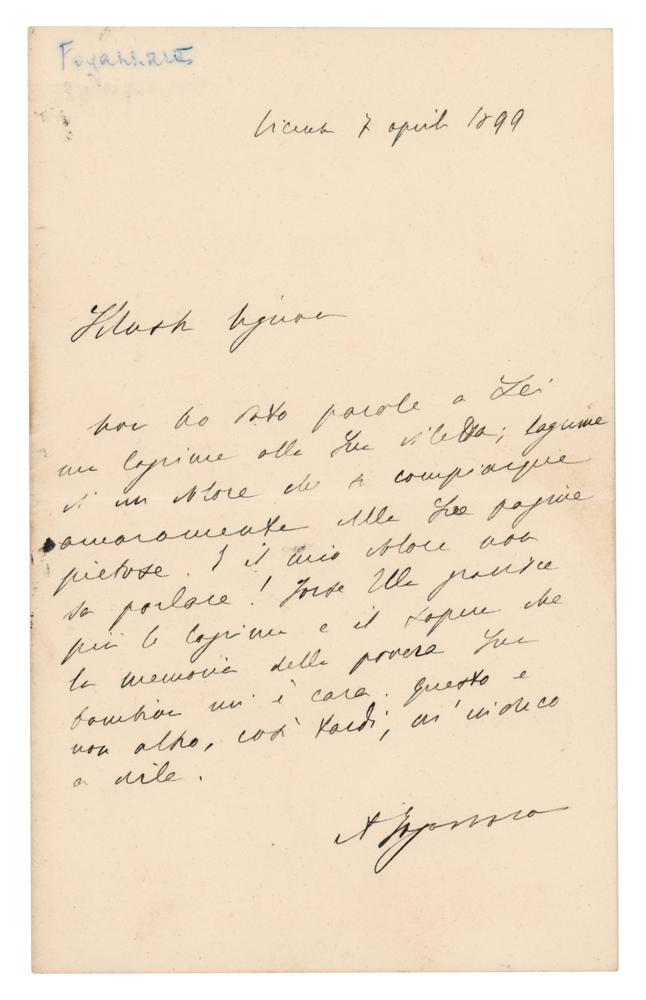 Fogazzaro
Vicenza 7 aprile 1899
Illustre Signora
non ho parole a Lei
ma lagrime alla Sua diletta; lagrime
di un dolore che si compiacque
amaramente delle Sue pagine
pietose. E il mio dolore non
sa parlare! Forse Ella gradisce
più le lagrime e il sapere che
la memoria della povera Sua
bambina mi è cara. Questo e
non altro, così tardi, m'induco
a dirle.
A Fogazzaro